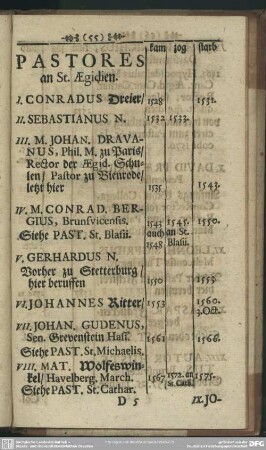 (55)
PASTORES kam zog starb
an St. Ægidien.
I. CONRADUS Dreier/ 1528 1531.
II. SEBASTIANUS N. 1532 1533.
III. M. JOHAN. DRAVA-
NUS, Phil. M. zu Paris/
Rector der Ægid. Schu-
len/ Pastor zu Vienrode/
letzt hier 1535 1543.
IV. M. CONRAD. BER- 1543 1545. 1550.
GIUS, Brunsvicensis, auch an St.
Siehe PAST. St. Blasii. 1548 Blasii.
V. GERHARDUS N.
Vorher zu Stetterburg/
hier beruffen 1550 1553.
VI. JOHANNES Ritter/ 1553 1560.
3. Oct.
VII. JOHAN. GUDENUS,
Sen. Grevenstein Hass. 1561 1566.
Siehe PAST. St. Michaelis.
VIII. MAT. Wolfeswin-
kel/ Havelberg. March. 1567 1572. an 1575.
Siehe PAST. St. Cathar. St. Cath.
D 5 IX. JO-